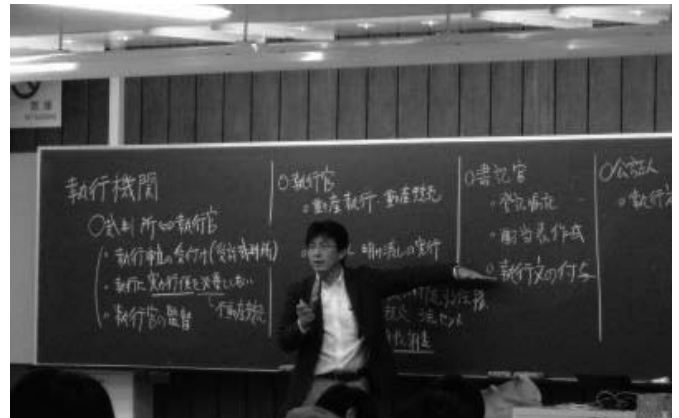 禁煙
執行機関
○裁判所⇔執行官
・執行申立の受付け(受訴裁判所)
・執行に実力行使を必要としない
・執行官の監督
不動産競売
○執行官
・動産執行・動産競売
明け渡しの実行
調査
○書記官
・登記嘱託
・配当表作成
・執行文の付与
○公証人
・執行文